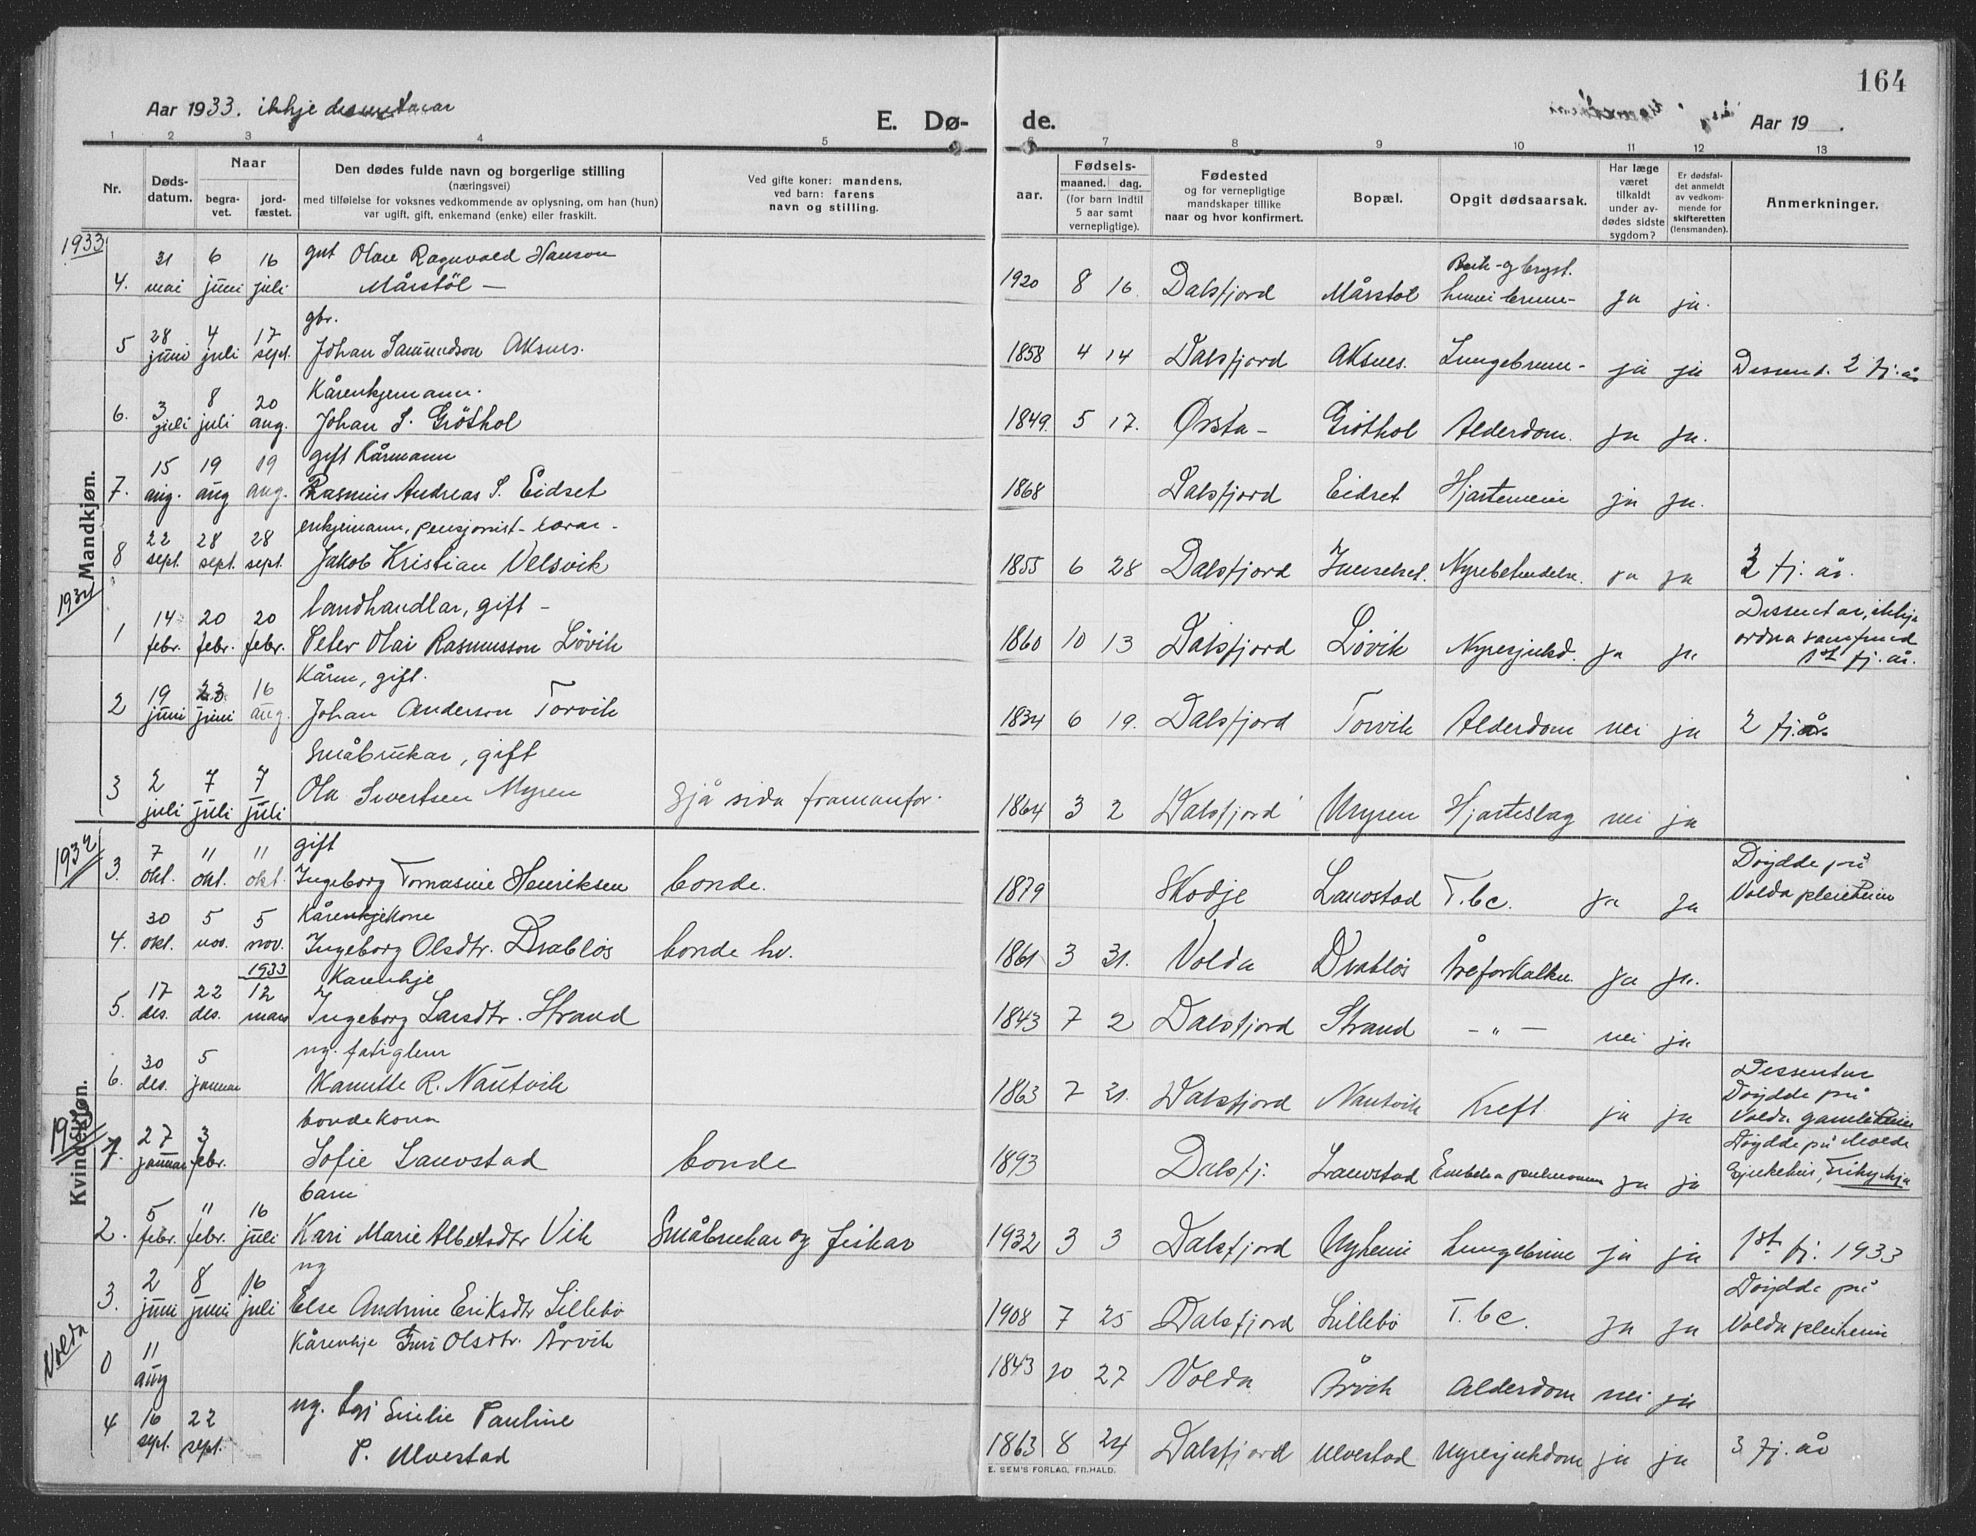 164
Aar 1933. ikkje dissentarar
E. Dø-
de.
Aar 19
1 2 3 4 5
6 7 8 9 10 11 12 13
Nr.
Døds-
datum.
Naar
begra-
vet.
jord-
fæstet.
Den dødes fulde navn og borgerlige stilling
(næringsvei)
med tilføielse for voksnes vedkommende av oplysning, om han (hun)
var ugift, gift, enkemand (enke) eller fraskilt.
Ved gifte koner: mandens,
ved barn: farens
navn og stilling.
aar.
Fødsels-
maaned. dag.
(for barn indtil
5 aar samt
vernepligtige).
Fødested
og for vernepligtige
mandskaper tillike
naar og hvor konfirmert.
Bopæl.
Opgit dødsaarsak.
Har læge
været
tilkaldt
under av-
dødes sidste
sygdom?
Er dødsfal-
det anmeldt
av vedkom-
mende for
skifteretten
(lensmanden).
Anmerkninger.
Mandkjøn.
1933
4. 31 mai 6 juni 16 juli gut Olav Ragnvald Hanson
Mårstöl — 1920 8 16. Dalsfjord Mårstöl ja ja.
5 28 juni 4 juli 17 sept. gbr.
Johan Samundson Aksnes. 1858 4 14 Dalsfjord Aksnes. Lungebrenn- ja ja Dissent. 2 fj. år
6. 3 juli 8 juli 20 aug. Kårenkjemann.
Johan S. Gröthol 1849. 5 17. Ørsta – Gröthol Alderdom. ja ja.
7. 15 aug. 19 aug 19 aug. gift Kårmann
Rasmus Andreas S. Eidset 1868 Dalsfjord Eidset Hjartemein ja ja.
8 22 sept. 28 sept. 28 sept. enkjemann, pensjonist - lærar -
Jakob Kristian Velsvik 1855 6 28 Dalsfjord Innselset. Nyrebetendelse. ja ja 2 fj. år.
1934
1 14 febr. 20 febr. 20 febr. landhandlar, gift –
Peter Olai Rasmusson Lövik 1860 10 13 Dalsfjord Lövik Nyresjukd. ja ja Dissentar, ikkje
ordna samfund
1st fj. år.
2 19 juni 23 juni 16 aug. Kårm, gift.
Johan Anderson Torvik 1834 6 19. Dalsfjord Torvik Alderdom nei ja 2 fj. år.
3 2 juli 7 juli 7 juli Småbrukar, gift
Ola Sivertsen Myren sjå sida framanfor. 1864 3 2 Dalsfjord Myren Hjarteslag nei ja
Kvindekjøn.
1932
3. 7 okt. 11 okt. 11 okt. gift
Ingeborg Tomasine Henriksen bonde. 1879 Skodje Lauvstad T.bc. ja ja Döydde på
Volda pleieheim
4. 30 okt. 5 nov. 5 nov. Kårenkjekone
Ingeborg Olsdtr. Drabløs bonde hv. 1861 3 31. Volda Drabløs Åreforkalkn. ja ja.
5. 17 des. 22 des. 1933 12 mars Kårenkje
Ingeborg Larsdtr. Strand 1843 7 2 Dalsfjord Strand – " – nei ja
6. 30 des. 5 januar ug. fatiglem
Kamille R. Nautvik 1863 7 21. Dalsfjord Nautvik Kreft ja ja Dissentar
Döydde på
Volda gamleheim
1933
1. 27 januar 3 febr. bondekona
Sofie Lauvstad bonde 1893 Dalsfj. Lauvstad ja ja Döydde på Molde
2. 5 febr. 11 febr. 16 juli barn
Kari Marie Albertsdtr Vik Småbrukar og fiskar 1932 3 3 Dalsfjord Nyheim Lungebrune ja ja 1st fj. 1933
3. 2 juni 8 juni 16 juli ug
Else Andrine Eriksdtr Lillebö 1908 7 25 Dalsfjord Lillebö T.bc. ja ja Döydde på
Volda pleiheim
Volda
0 11 aug Kårenkje Guri Olsdtr. Årvik 1843 10 27 Volda Årvik Alderdom nei ja
4 16 sept. 22 sept. ug. Emilie Pauline
P. Ulvestad 1863 8 24 Dalsfjord Ulvestad Nyresjukdom ja ja 3 fj. år
E. SEM'S FORLAG, FR.HALD.